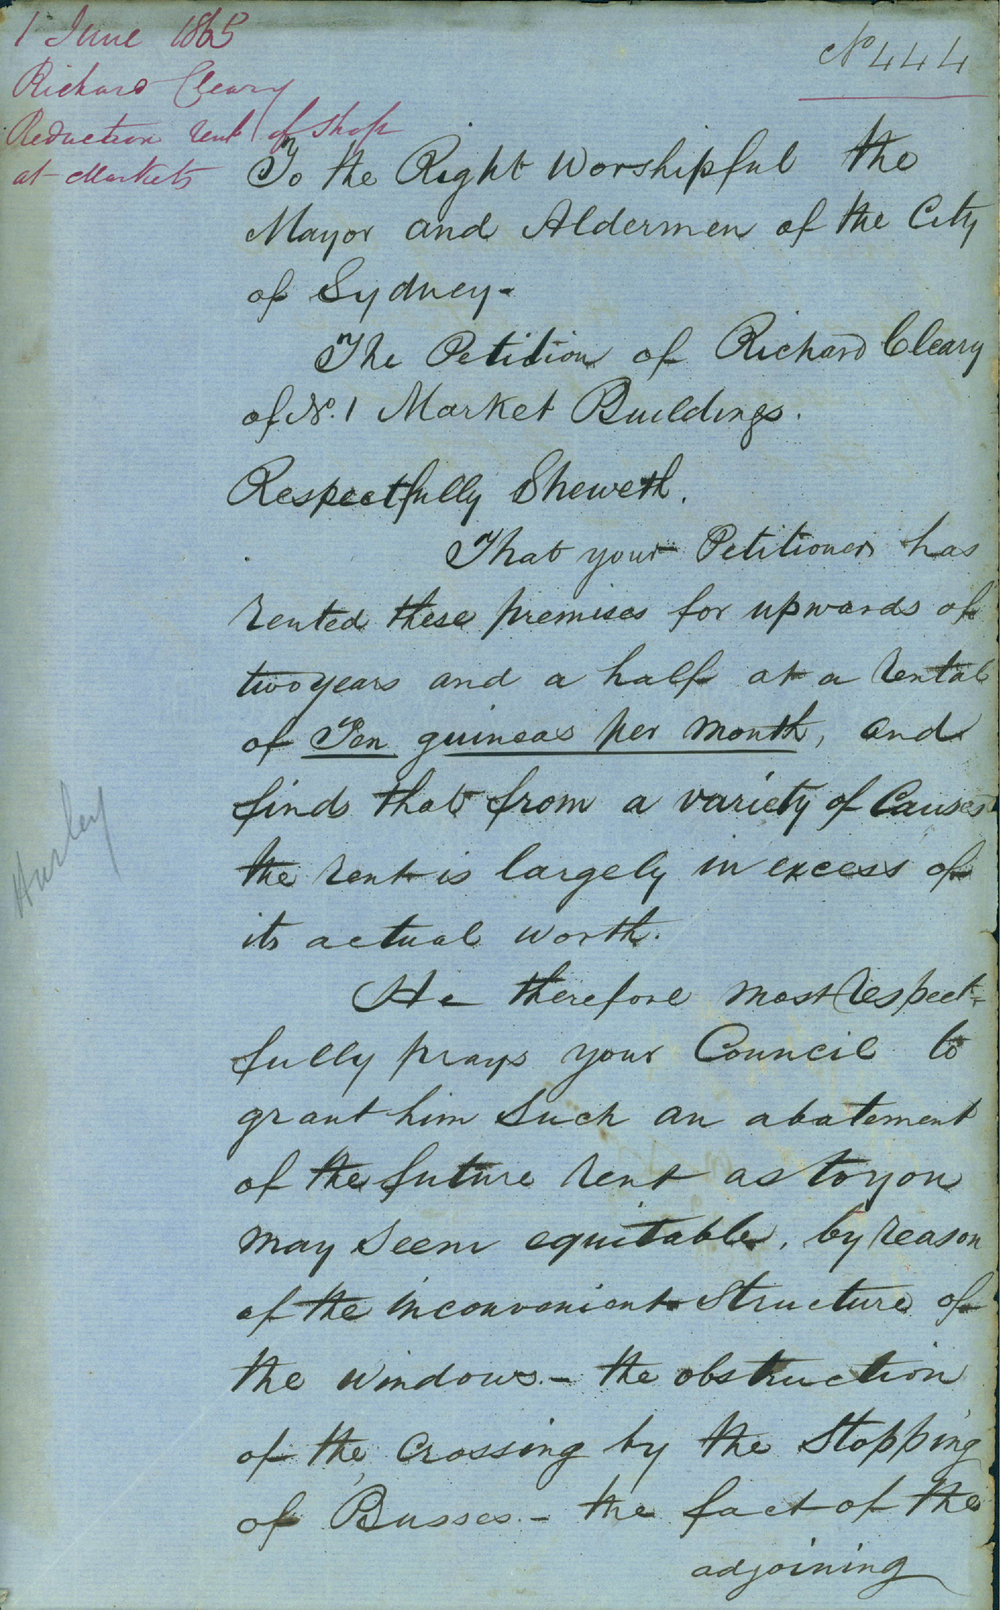 1 June 1865
Richard Cleary
Reduction rent of shop
at Markets
No 444
To the Right Worshipful the
Mayor and Aldermen of the City
of Sydney-
The Petition of Richard Cleary
of No. 1 Market Buildings.
Respectfully Sheweth.
That your Petitioner has
rented these premises for upwards of
two years and a half at a rental
of Ten guineas per month, and
finds that from a variety of Causes
the rent is largely in excess of
its actual worth.
He therefore most respect-
fully prays your Council to
grant him such an abatement
of the future rent as to you
may seem equitable, by reason
of the inconvenient structure of
the windows - the obstruction
of the Crossing by the stopping
of Busses - the fact of the
adjoining
Hurley